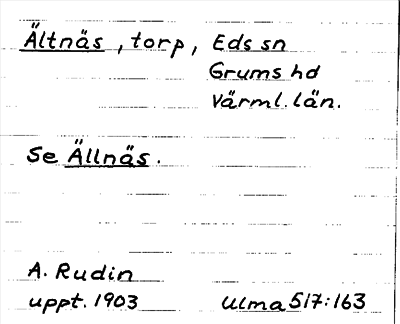 Ältnäs, torp, Eds sn
Grums hd
Värml. län.
Se Ällnäs.
A. Rudin
uppt. 1903 Ulma 517:163